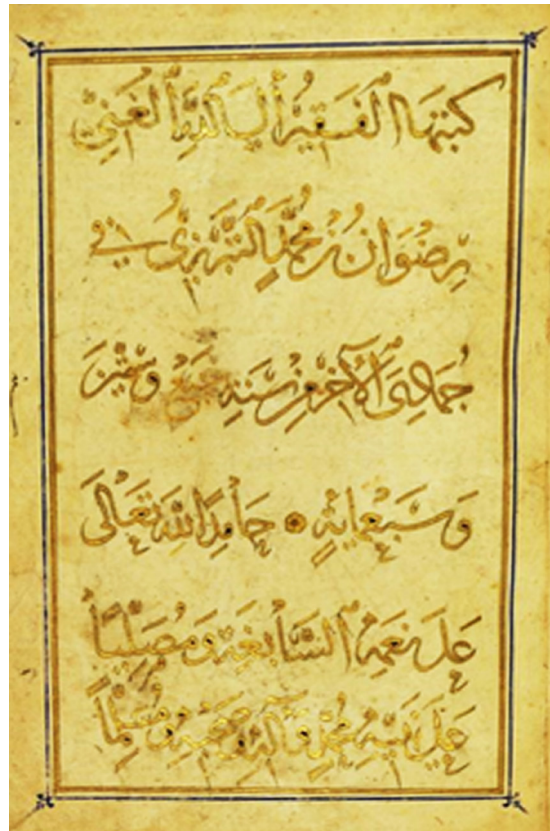 كتبها الفقير الى الله الغني
رضوان بن محمد التبريزي في
جمادى الآخر من سنة وستين
وسبعماية حامدا لله تعالى
على نعمه السابغة ومصليا
على نبيه محمد وآله وصحبه ومسلما